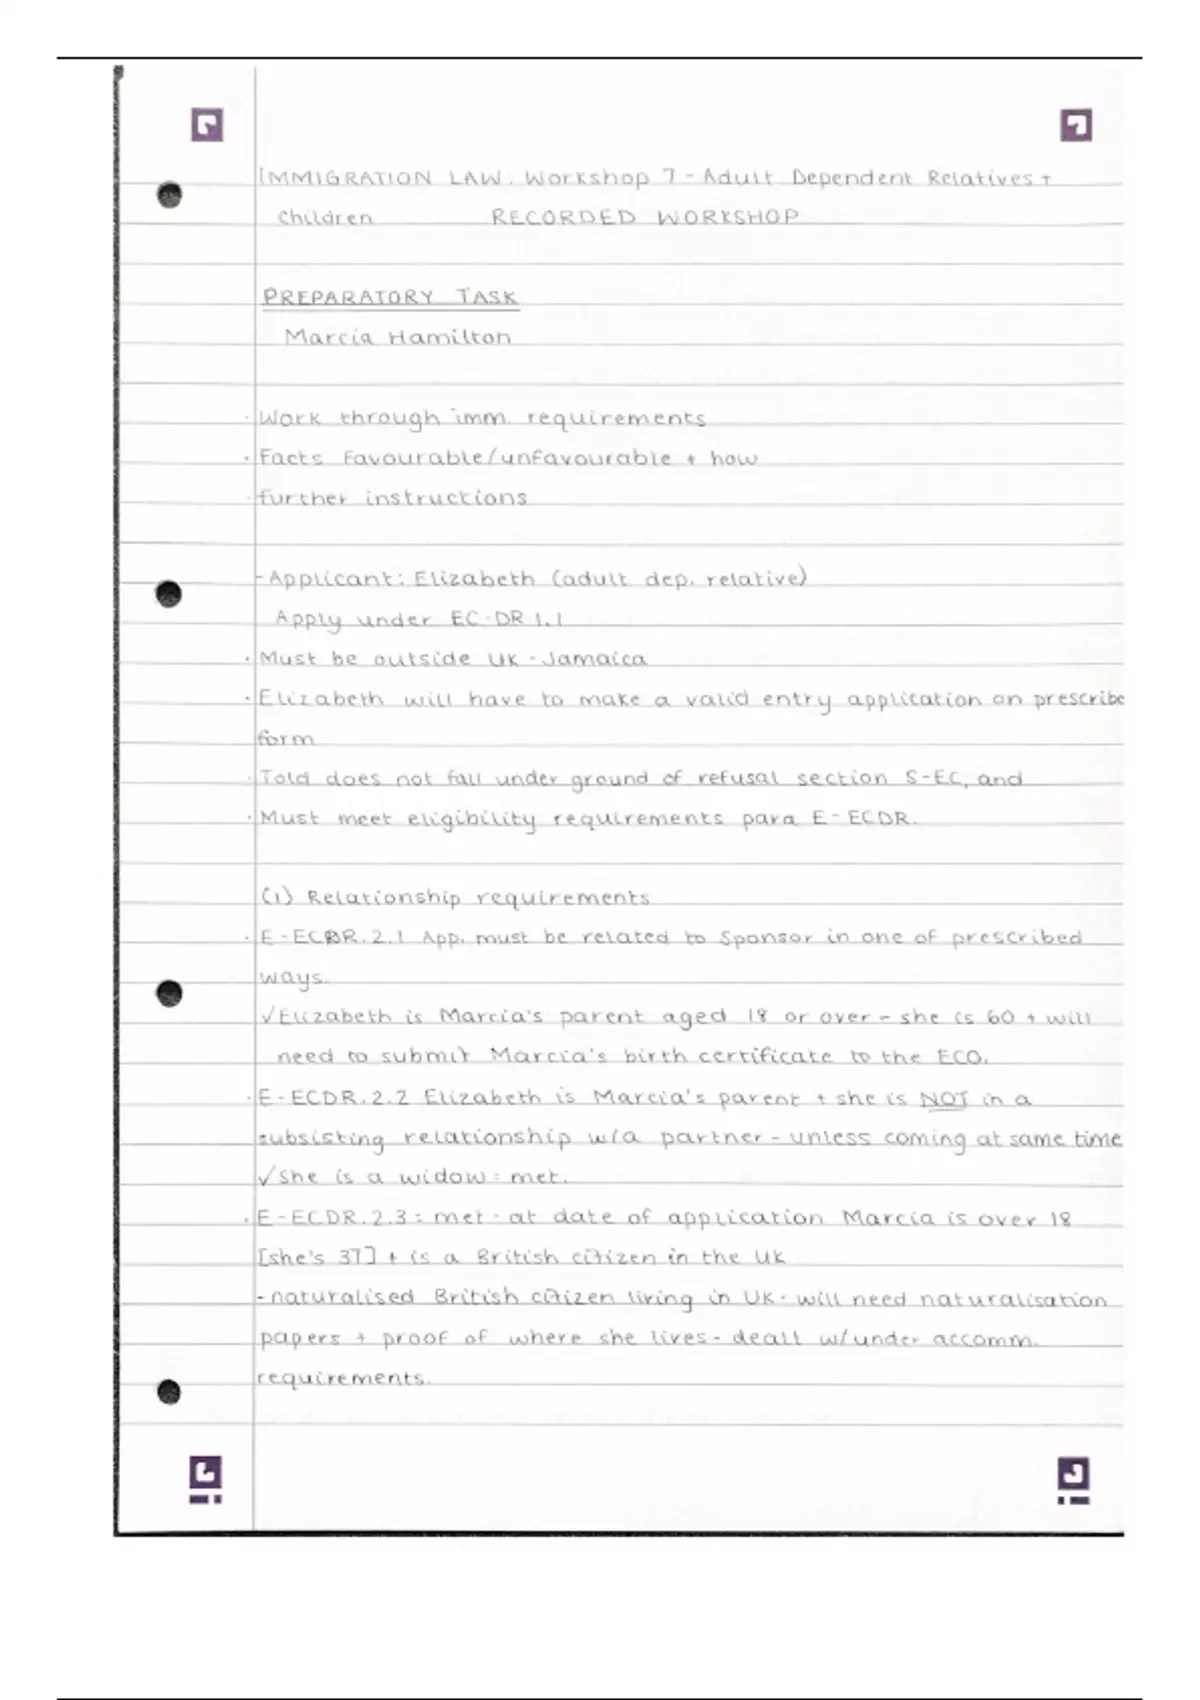 IMMIGRATION LAW. Workshop 7 - Adult Dependent Relatives +
Children RECORDED WORKSHOP
PREPARATORY TASK
Marcia Hamilton
· Work through imm. requirements
· Facts Favourable/unfavourable + how
· further instructions
- Applicant: Elizabeth (adult dep. relative)
Apply under EC-DR 1.1
· Must be outside UK - Jamaica
· Elizabeth will have to make a valid entry application on prescribe
form
· Told does not fall under ground of refusal section S-EC, and
· Must meet eligibility requirements para E-ECDR.
(1) Relationship requirements
· E-ECDR.2.1 App. must be related to Sponsor in one of prescribed
ways.
✓ Elizabeth is Marcia's parent aged 18 or over - she is 60 + will
need to submit Marcia's birth certificate to the ECO.
· E-ECDR.2.2 Elizabeth is Marcia's parent + she is NOT in a
subsisting relationship w/a partner - unless coming at same time
✓ She is a widow = met.
· E-ECDR.2.3 = met - at date of application Marcia is over 18
[she's 37] + is a British citizen in the UK
- naturalised British citizen living in UK - will need naturalisation
papers + proof of where she lives - dealt w/under accomm.
requirements.